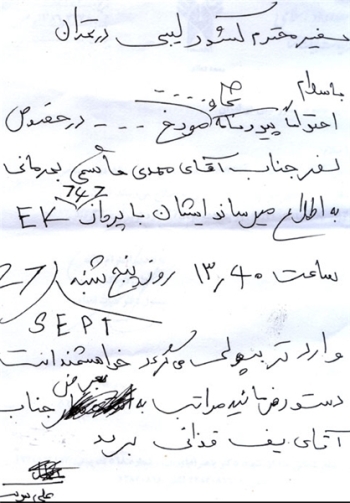 سفیر محترم کشور لیبی در تهران
با سلام
احتراماً پیرو نامه مورخ ---- در خصوص
سفر جناب آقای مهدی هاشمی بهرمانی
747
به اطلاع میرساند ایشان با پرواز EK
ساعت ۱۳,۴۰ روز پنج شنبه 27
SEPT
وارد تریپولی می گردد خواهشمند است
دستور فرمائید مراتب به عرض جناب
آقای سیف قذافی برسد
علی